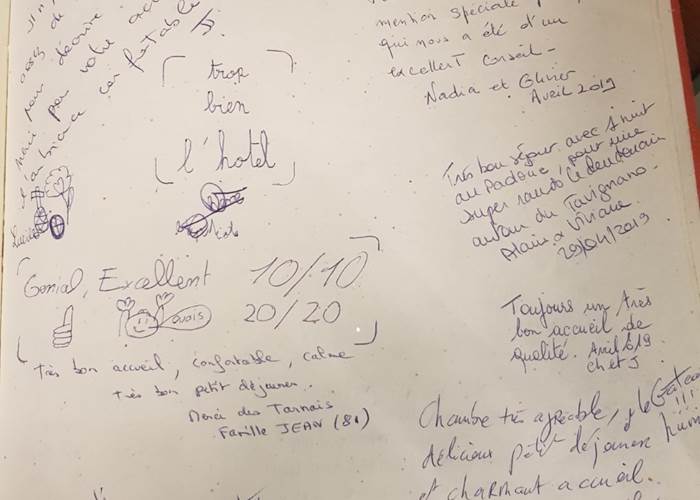 assez de
pour décrire
pour votre
confortable
trop
bien
l'hotel
Génial, Excellent 10/10
ouais 20/20
très bon accueil, confortable, calme
très bon petit déjeuner..
Merci des Tarnais
Famille JEAN (81)
mention spéciale
qui nous a été d'un
excellent conseil -
Nadia et Olivier
Avril 2019
Très bon séjour avec 1 nuit
au Padoue, pour une
super rando le lendemain
autour du Tavignano -
Alain & Viviane
29/04/2019
Toujours un très
bon accueil de
qualité. Avril 619
ch et J
Chambre très agréable,
délicieux petit déjeuner hum
!!!
et charmant accueil..